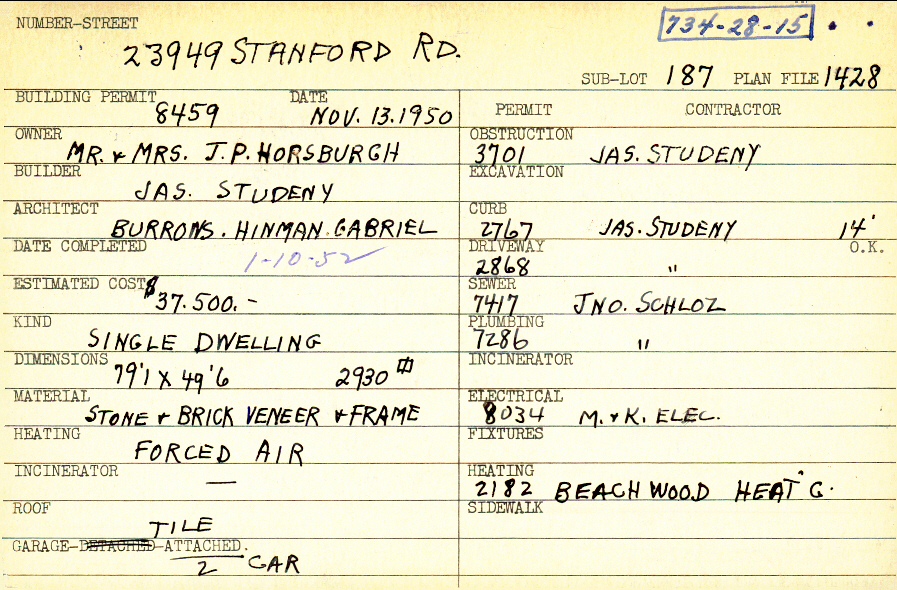 NUMBER-STREET
734-28-15
23949 STANFORD RD.
SUB-LOT 187 PLAN FILE 1428
BUILDING PERMIT DATE
8459 NOV. 13. 1950
OWNER
MR. & MRS. J.P. HORSBURGH
BUILDER
JAS. STUDENY
ARCHITECT
BURRONS. HINMAN. GABRIEL
DATE COMPLETED
1-10-52
ESTIMATED COST
$37.500.-
KIND
SINGLE DWELLING
DIMENSIONS
79'1 X 49'6 2930
MATERIAL
STONE & BRICK VENEER & FRAME
HEATING
FORCED AIR
INCINERATOR
—
ROOF
TILE
GARAGE-DETACHED-ATTACHED.
2 CAR
PERMIT CONTRACTOR
OBSTRUCTION
3701 JAS. STUDENY
EXCAVATION
CURB
2767 JAS. STUDENY 14'
DRIVEWAY O.K.
2868 "
SEWER
7417 JNO. SCHLOZ
PLUMBING
7286 "
INCINERATOR
ELECTRICAL
8034 M. & K. ELEC.
FIXTURES
HEATING
2182 BEACHWOOD HEAT'G.
SIDEWALK